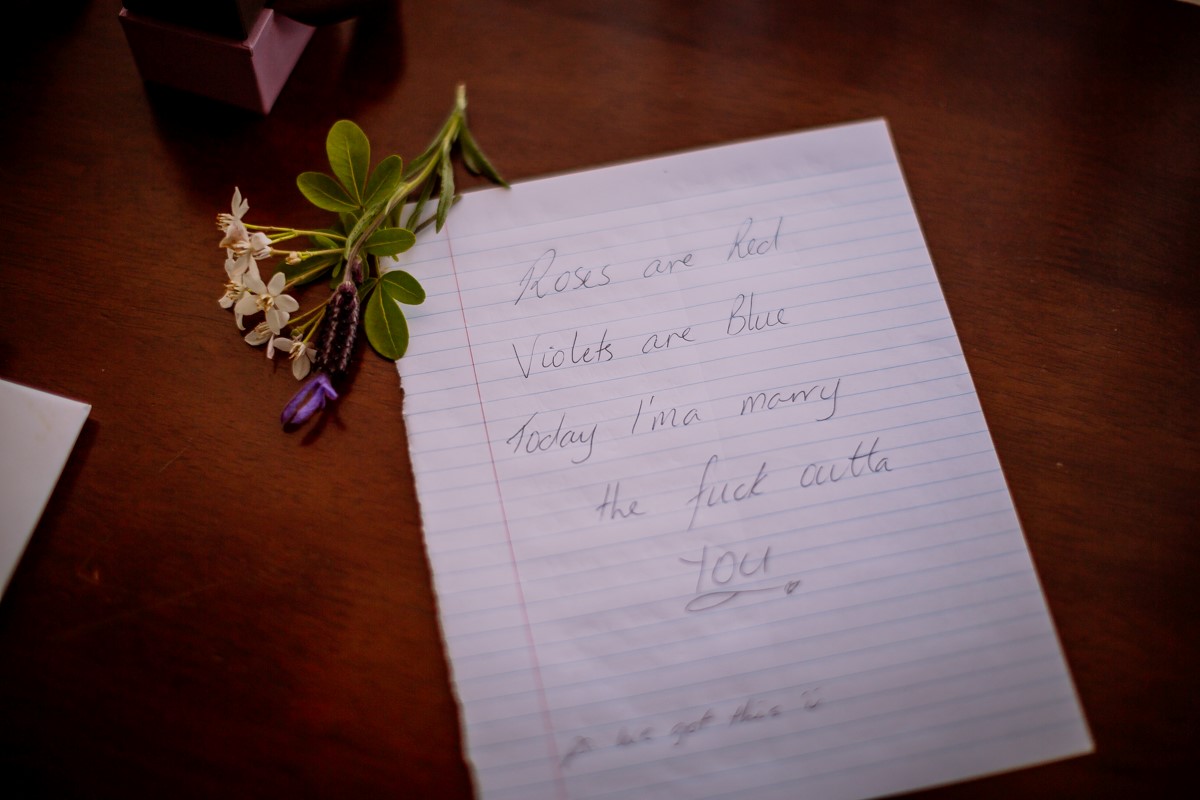 Roses are Red
Violets are Blue
Today I'ma marry
the fuck outta
YOU
we got this